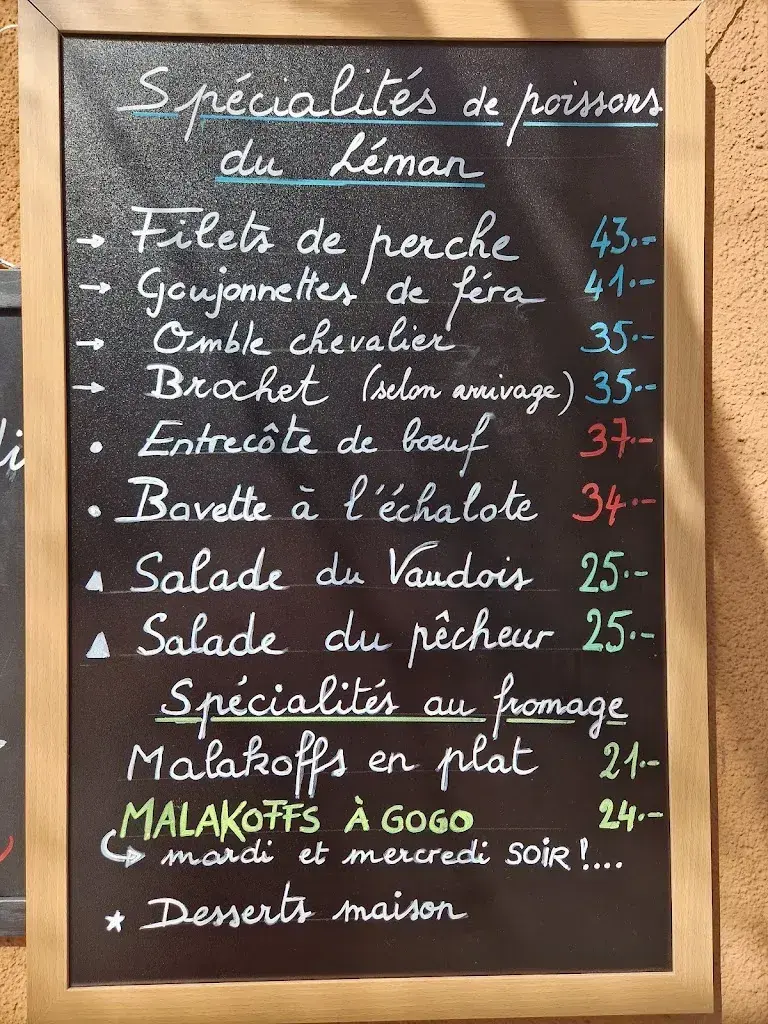 Spécialités de poissons
du Léman
→ Filets de perche 43.-
→ Goujonnettes de féra 41.-
→ Omble chevalier 35.-
→ Brochet (selon arrivage) 35.-
• Entrecôte de bœuf 37.-
• Bavette à l'échalote 34.-
▲ Salade du Vaudois 25.-
▲ Salade du pêcheur 25.-
Spécialités au fromage
Malakoffs en plat 21.-
MALAKOFFS À GOGO 24.-
↪ mardi et mercredi SOIR !....
★ Desserts maison